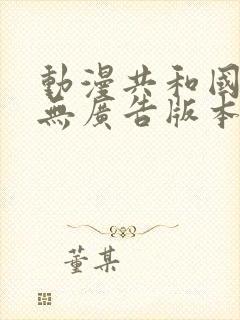 動漫共和國
無廣告版本
董某